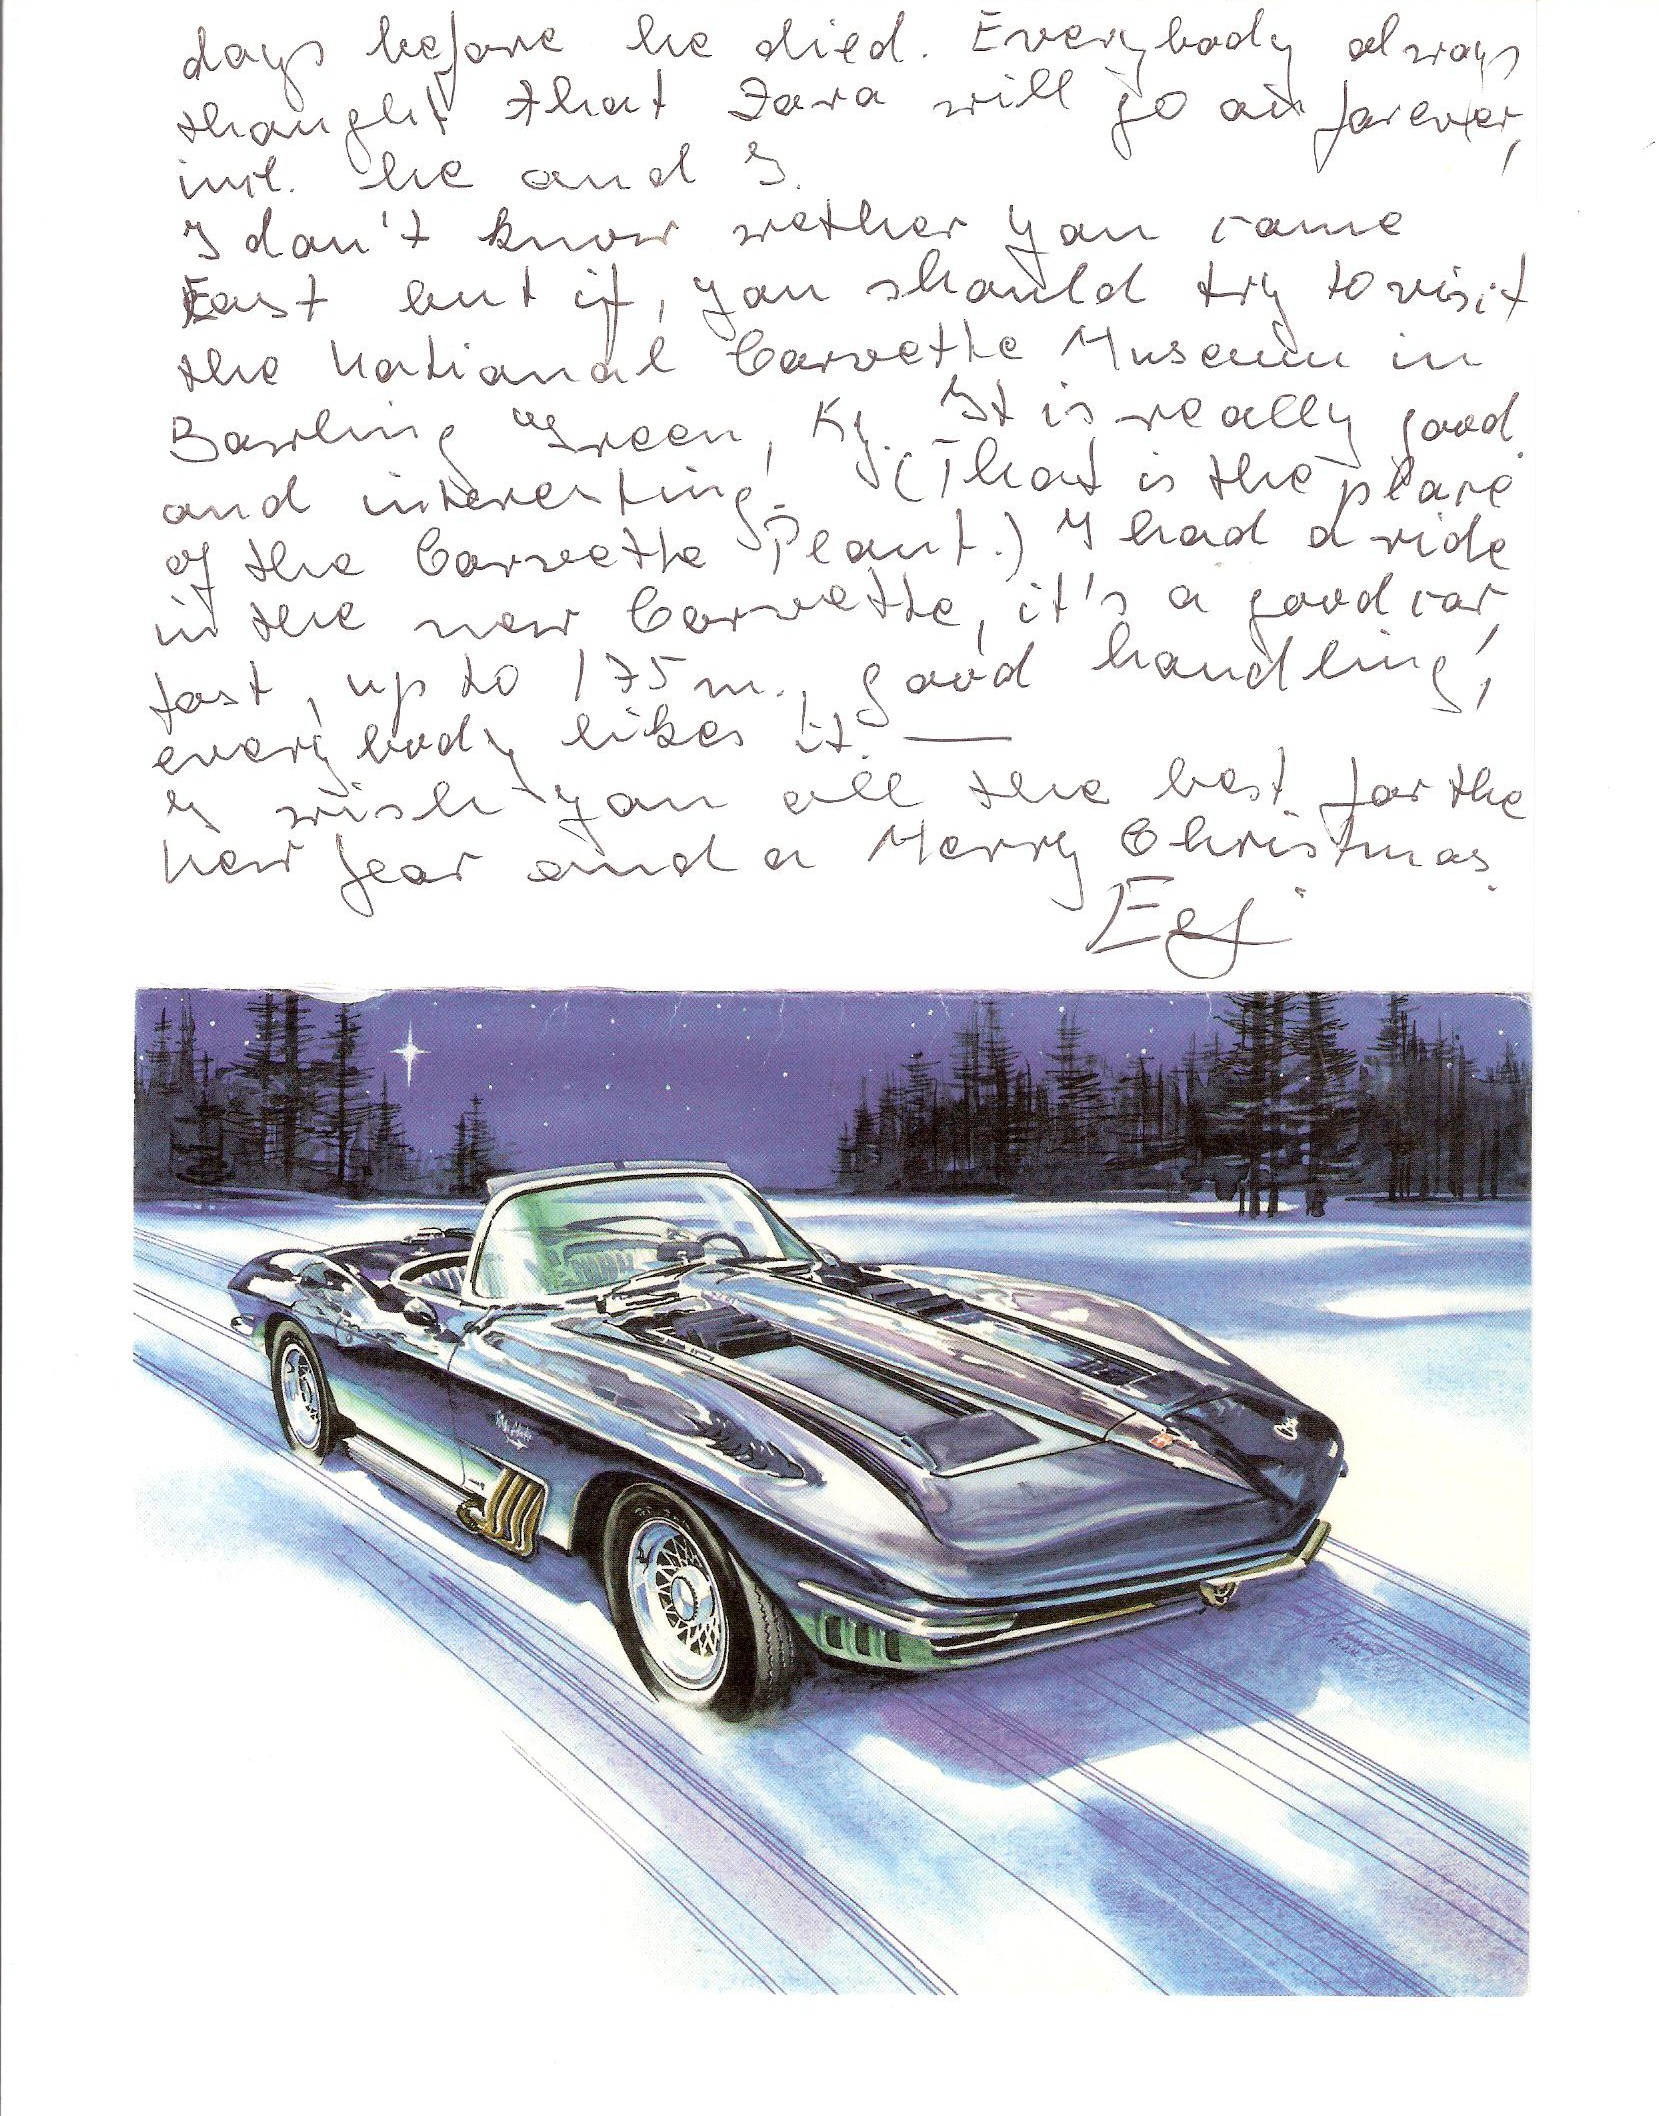 days before he died. Everybody always
thought that Zora will go on forever,
incl. he and I.
I don't know wether you come
East but if, you should try to visit
the National Corvette Museum in
Bowling Green, Ky. It is really good
and interesting. (That is the place
of the Corvette Plant.) I had a ride
in the new Corvette, it's a good car,
fast, up to 175 m., good handling,
everybody likes it. —
I wish you all the best for the
New Year and a Merry Christmas.